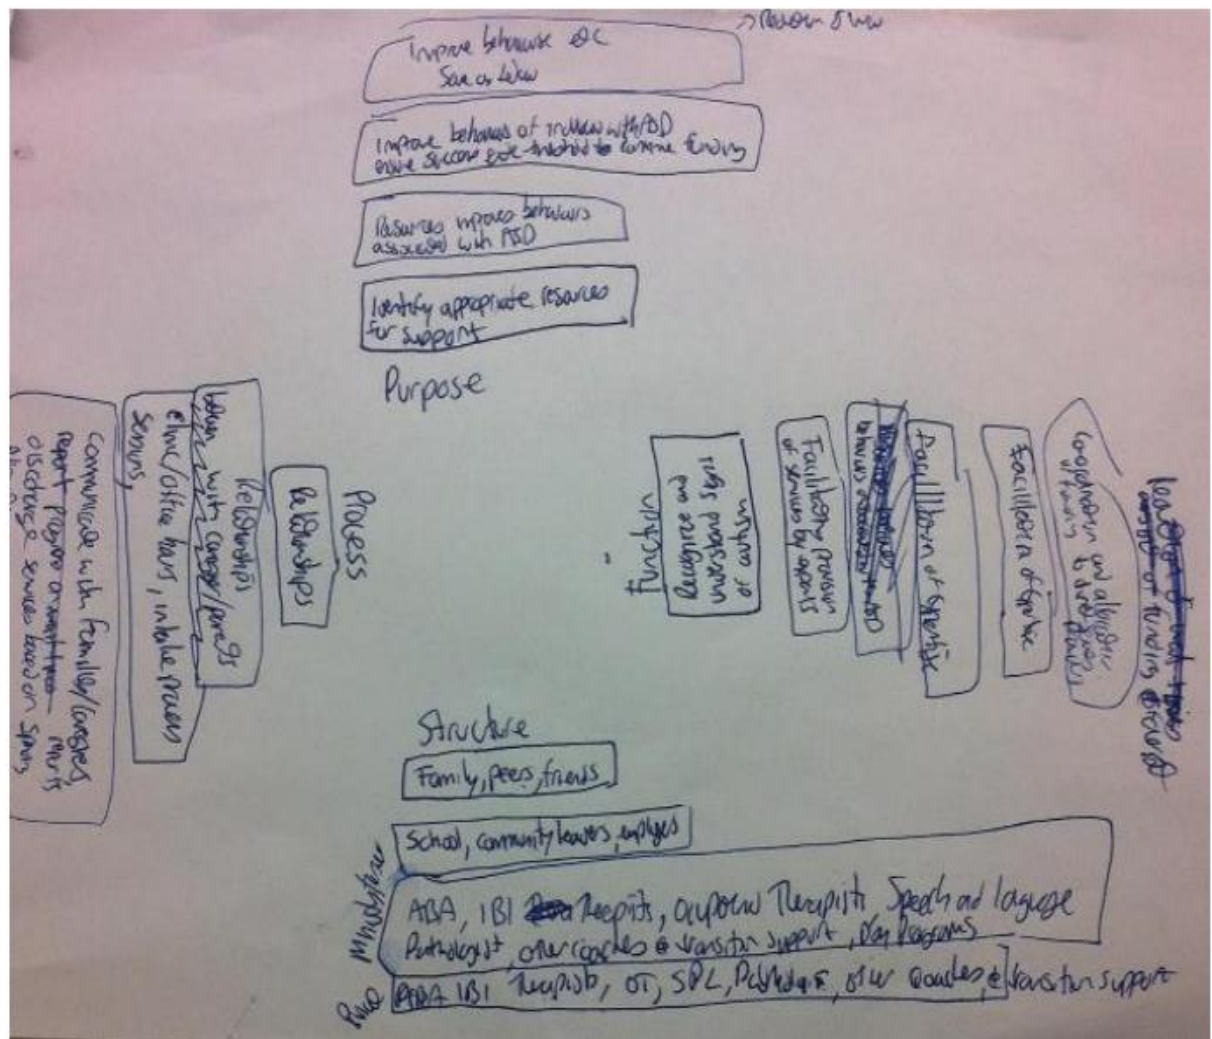 Improve behaviour etc
Same as below
Improve behaviours of with ASD
success to continue funding
Resources improves behaviours
associated with ASD
Identify appropriate resources
for support
Purpose
Process
Relationships
Relationships
between with caregiver/parents
clinic/office hours, intake process
sessions,
Communicate with families/caregivers,
report progress
discharge services based on
Function
Recognize and
understand signs
of autism
Facilitating provision
of services by experts
Facilitation of expertise
Facilitation of expertise
Coordination and allocation
of funding to direct
of funding
Structure
Family, peers, friends
School, community leaders, employers
ABA, IBI Therapists, Therapists, Speech and language
Pathologist, other coaches transition support, Day Programs
ABA IBI Therapists, OT, SPL, other coaches, transition support